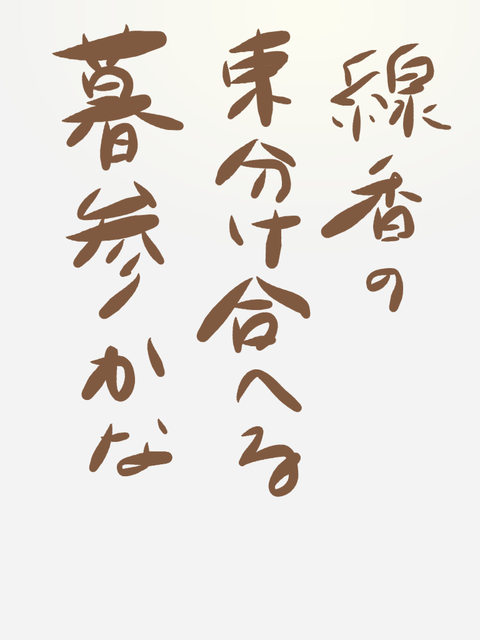 線香の
束分け合へる
墓参かな